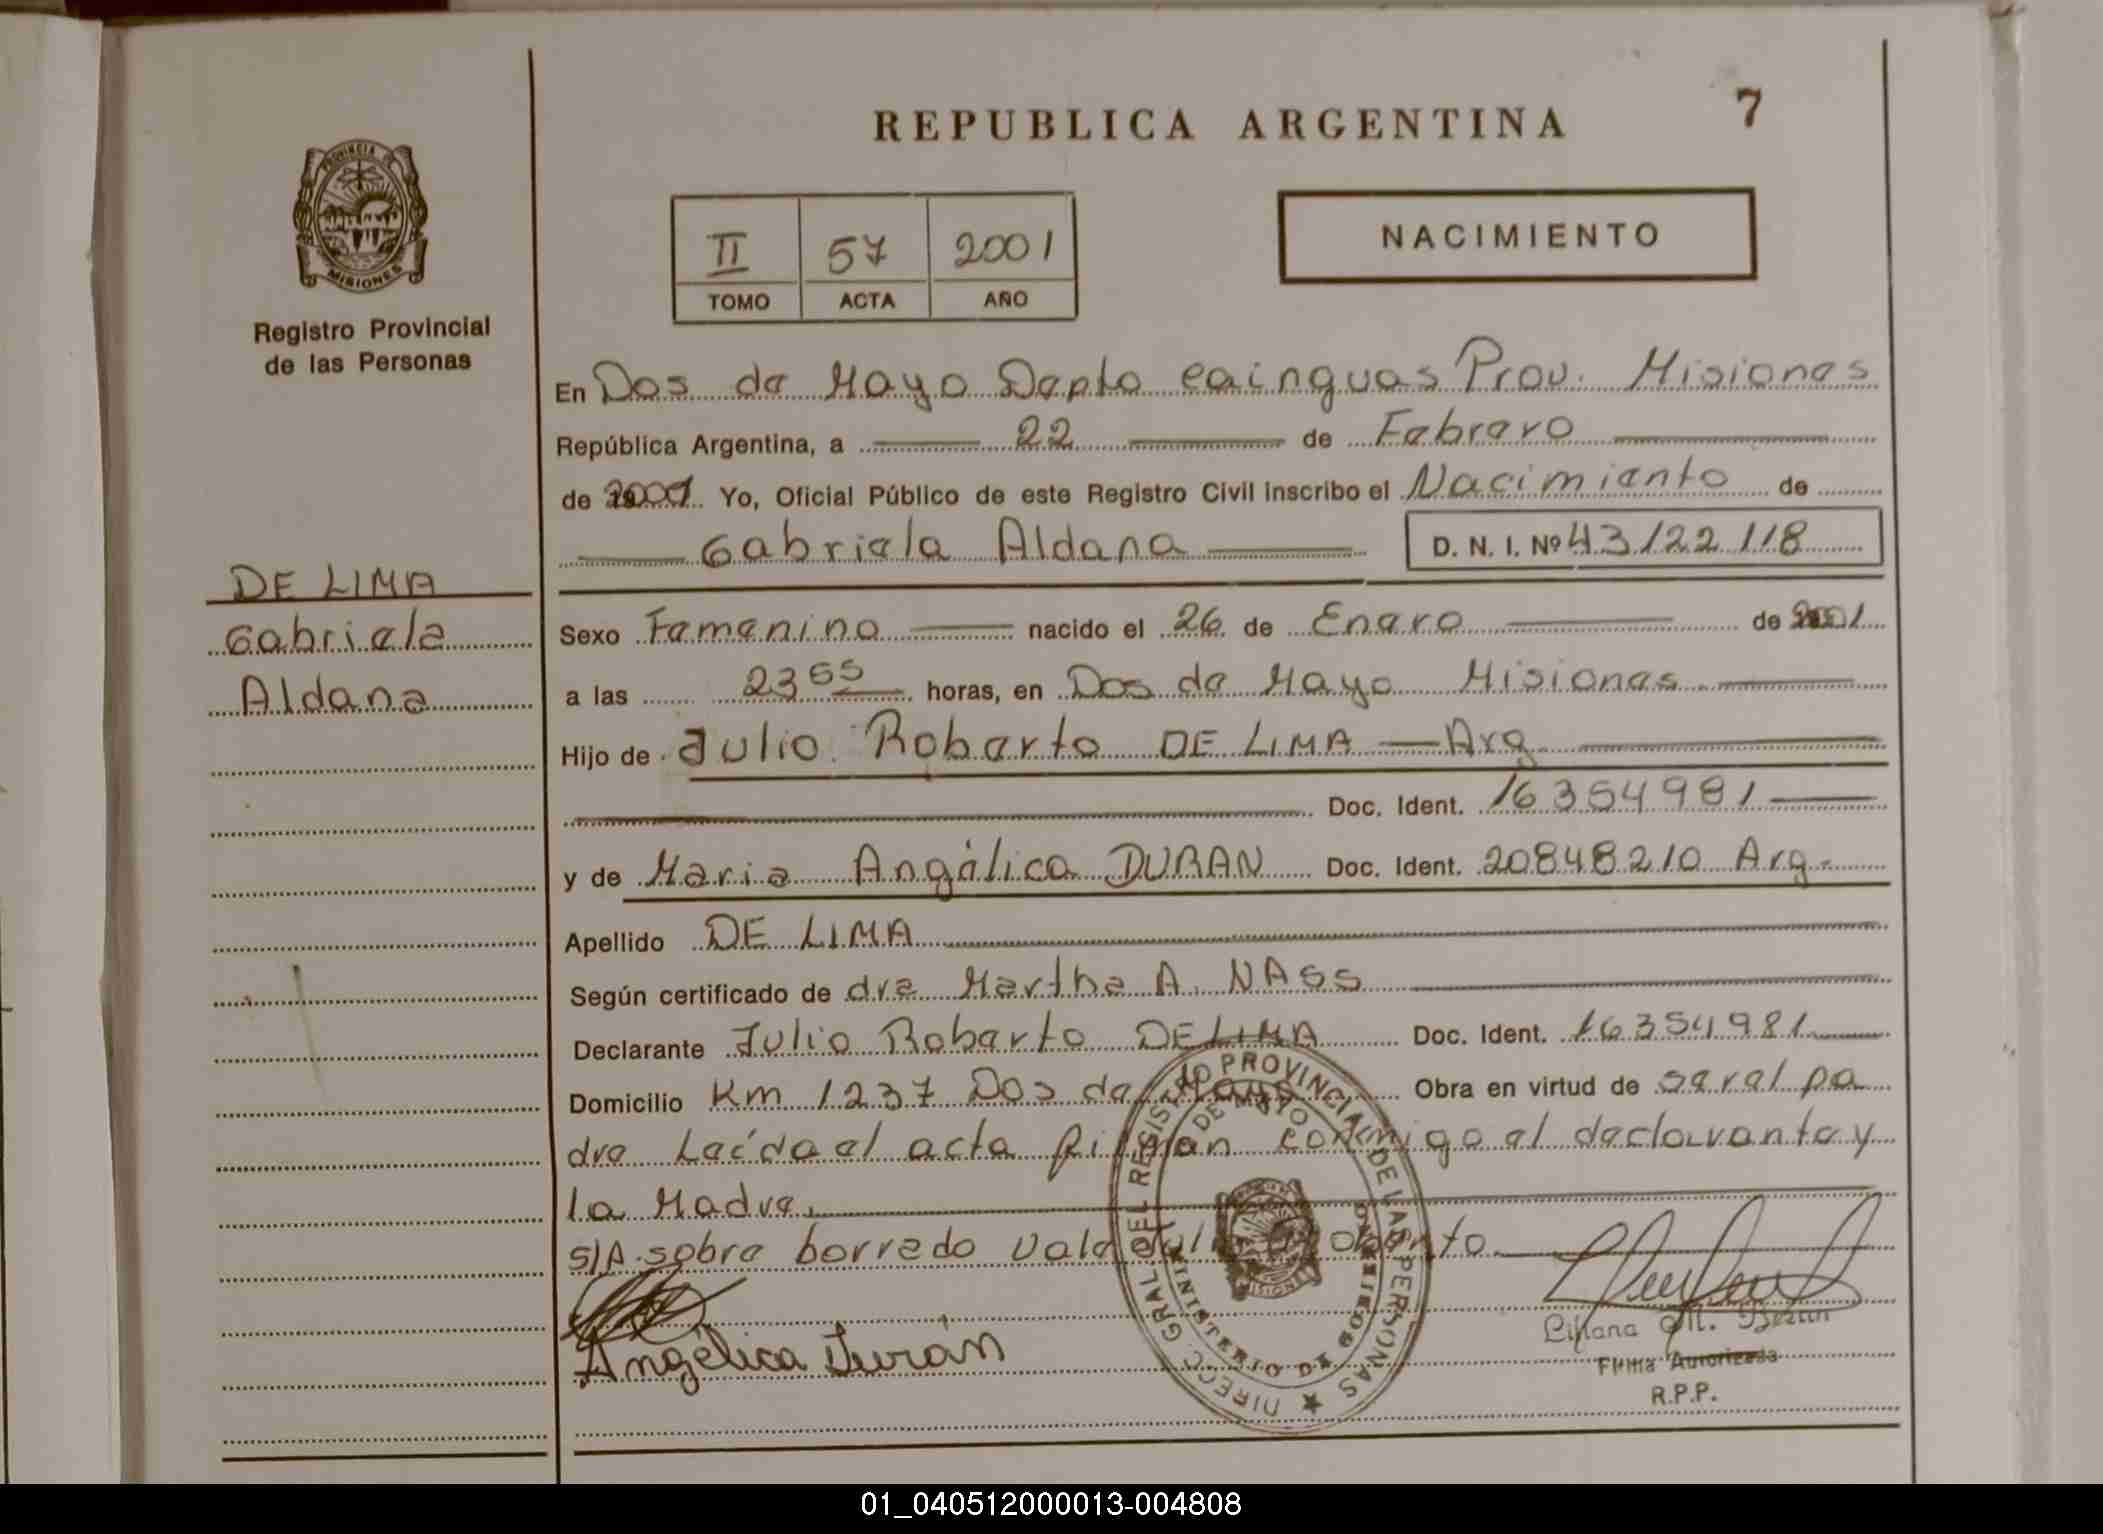 REPUBLICA ARGENTINA
7
PROVINCIA DE
MISIONES
Registro Provincial
de las Personas
II 57 2001
TOMO ACTA AÑO
NACIMIENTO
En Dos de Mayo Depto Cainguas Prov. Misiones
República Argentina, a 22 de Febrero
de 2001 Yo, Oficial Público de este Registro Civil inscribo el Nacimiento de
Gabriela Aldana D. N. I. Nº 43122118
DE LIMA
Gabriela
Aldana
Sexo Femenino nacido el 26 de Enero de 2001
a las 23 55 horas, en Dos de Mayo Misiones
Hijo de Julio Roberto DE LIMA — Arg.
Doc. Ident. 16354981
y de Maria Angélica DURAN Doc. Ident. 20848210 Arg.
Apellido DE LIMA
Según certificado de dra Martha A. NASS
Declarante Julio Roberto DE LIMA Doc. Ident. 16354981
Domicilio Km 1237 Dos de Mayo Obra en virtud de ser el pa
dre Leída el acta firman conmigo el declarante y
la Madre.
S/A. sobre borrado vale Julio Roberto
Angélica Durán
DIREC. GRAL DEL REGISTRO PROVINCIAL DE LAS PERSONAS
DOS DE MAYO
MINISTERIO DE GOBIERNO
MISIONES
Liliana M.
Firma Autorizada
R.P.P.
01_040512000013-004808